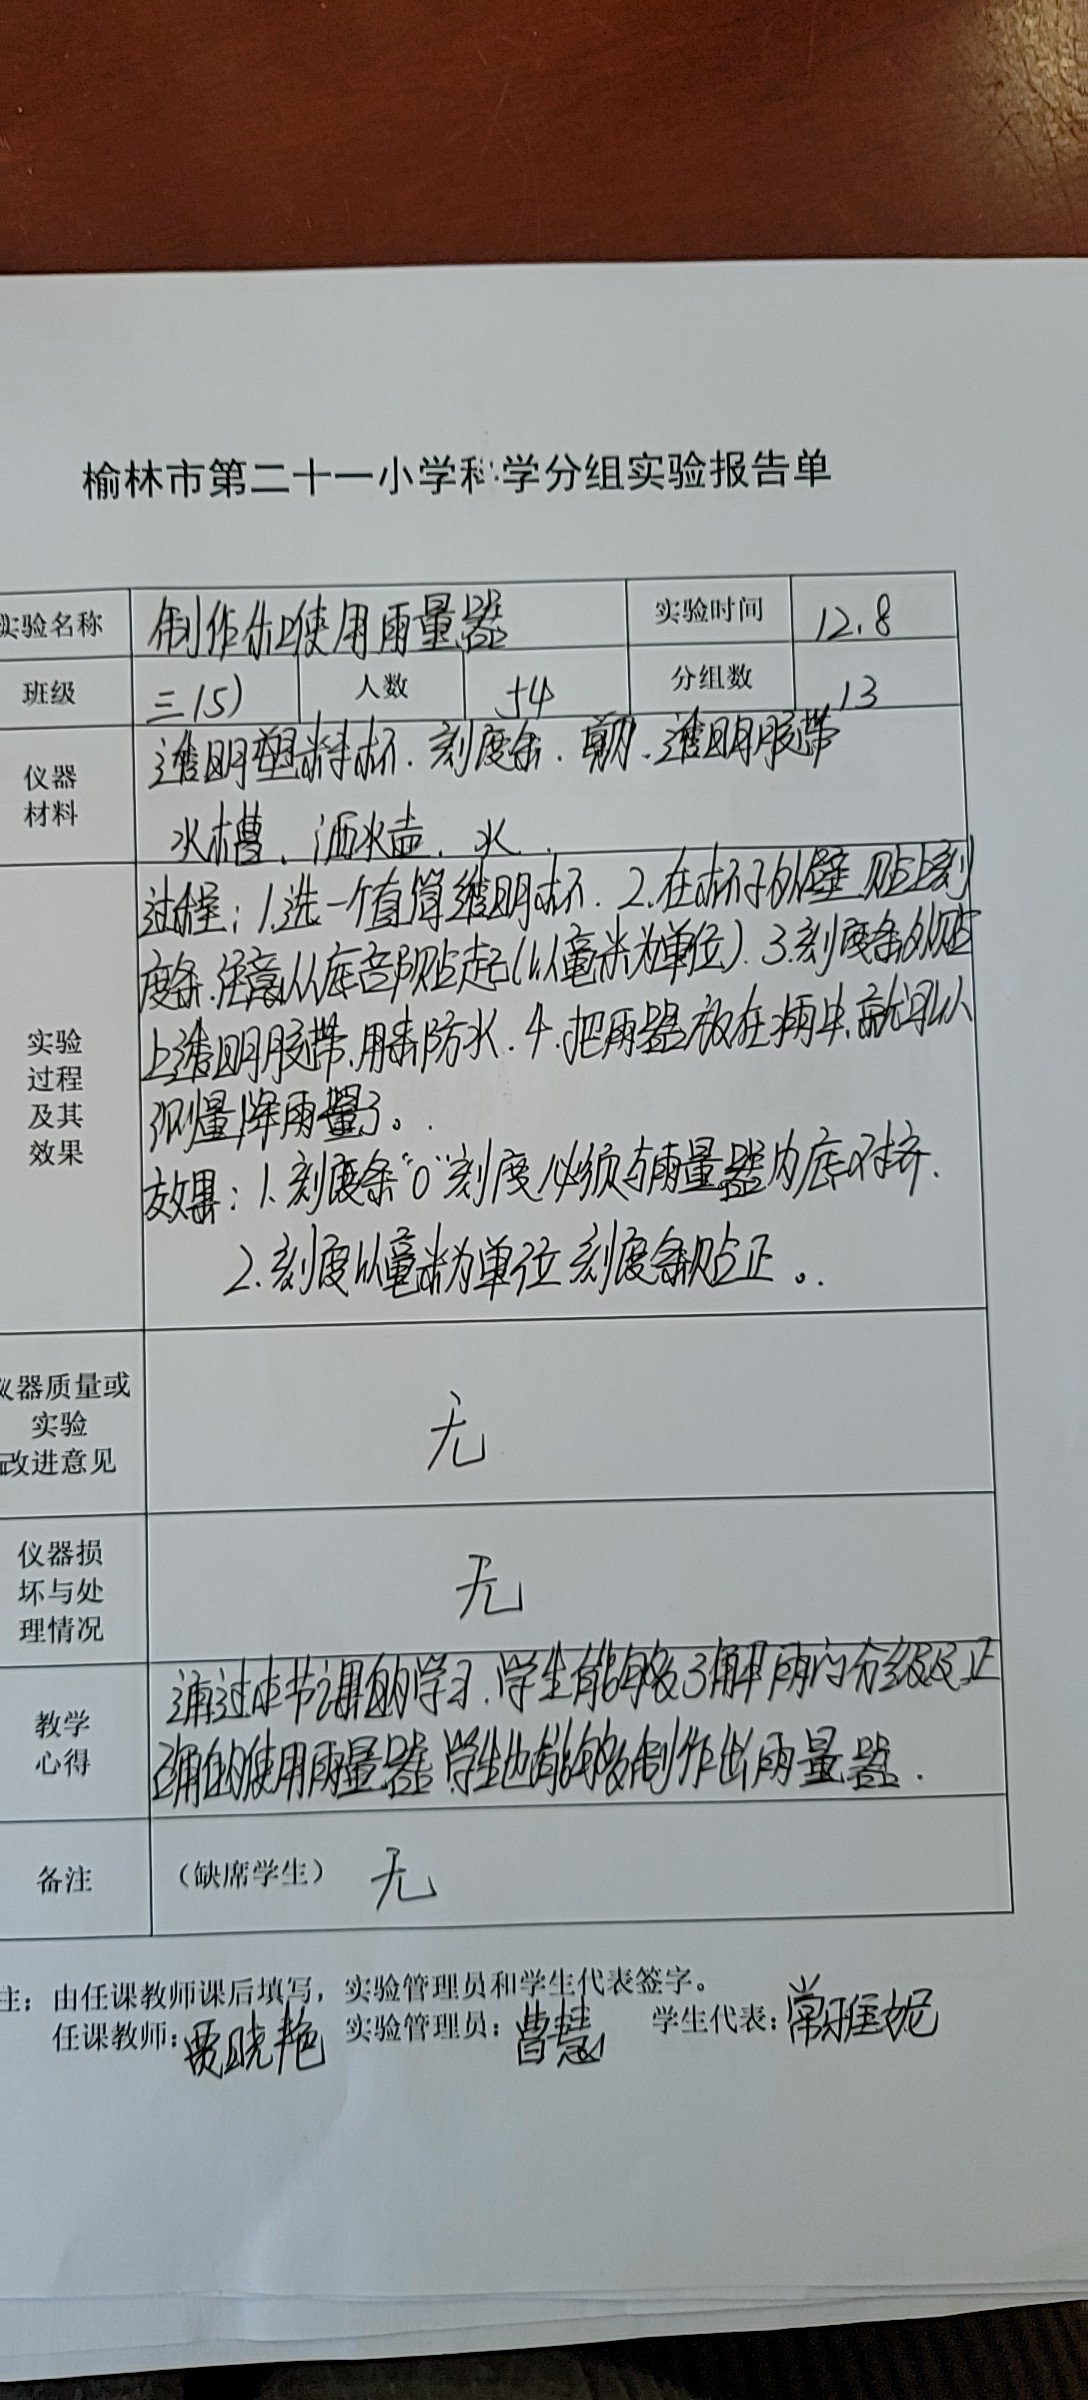 榆林市第二十一小学科学分组实验报告单
实验名称 制作和使用雨量器 实验时间 12.8
班级 三(5) 人数 54 分组数 13
仪器材料 透明塑料杯、刻度条、剪刀、透明胶带
水槽、洒水壶、水.
实验过程及其效果
过程：1.选一个直筒透明杯. 2.在杯子外壁贴上刻
度条.注意从底部贴起(以毫米为单位). 3.刻度条外贴
上透明胶带、用来防水. 4.把雨器放在雨中、就可以
测量降雨量了。.
效果：1.刻度条“0”刻度必须与雨量器内底对齐.
2.刻度以毫米为单位 刻度条贴正。.
仪器质量或实验改进意见 无
仪器损坏与处理情况 无
教学心得 通过本节课的学习、学生能够了解雨的分级及正
确的使用雨量器.学生也能够制作出雨量器.
备注 （缺席学生） 无
注：由任课教师课后填写，实验管理员和学生代表签字。
任课教师：贾晓艳 实验管理员：曹慧 学生代表：常雅妮